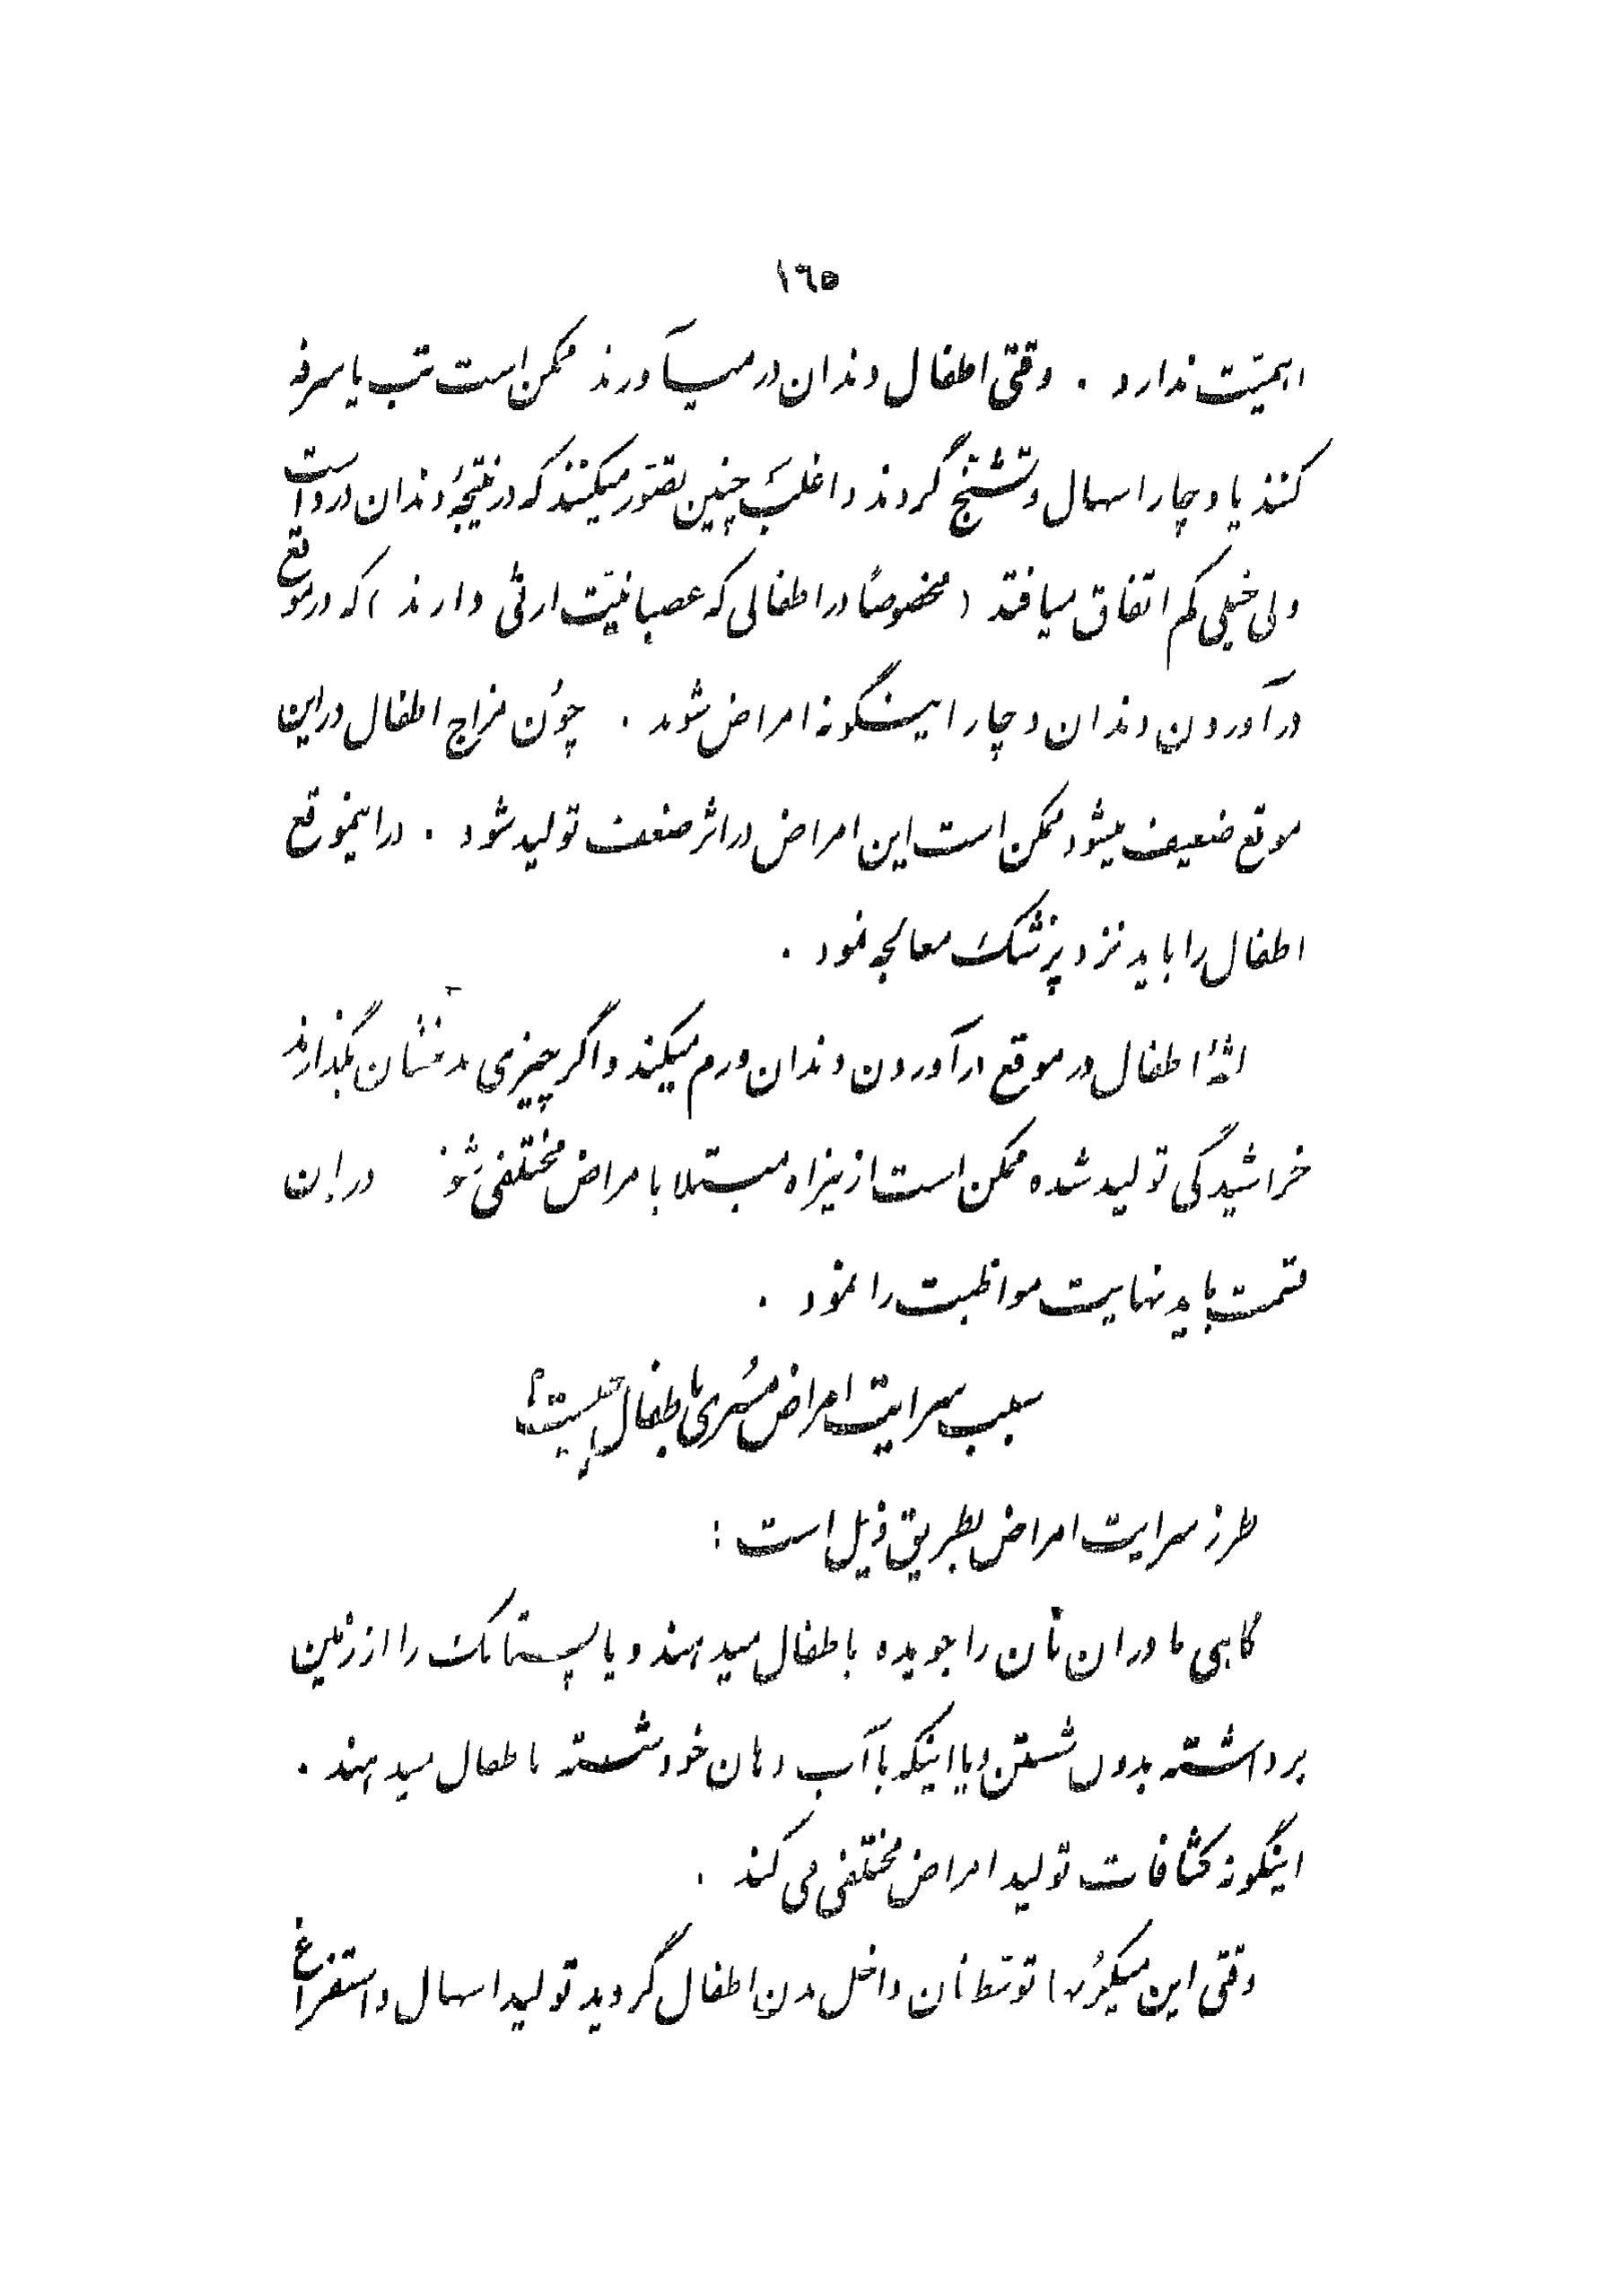 ١٦٥
اهمیّت ندارد . وقتی اطفال دندان درمیآورند ممکن است تب یا سرفه
کنند یا دچار اسهال و تشنّج گردند و اغلب چنین تصوّر میکنند که در نتیجهٔ دندان درد است
ولی خیلی کم اتفاق میافتد ( مخصوصاً در اطفالی که عصبانیّت ارثی دارند ) که در موقع
درآوردن دندان دچار اینگونه امراض شوند . چون مزاج اطفال در این
موقع ضعیف میشود ممکن است این امراض در اثر ضعف تولید شود . در اینموقع
اطفال را باید نزد پزشک معالجه نمود .
لثهٔ اطفال در موقع درآوردن دندان ورم میکند و اگر چیزی بدهنشان بگذارند
خراشیدگی تولید شده ممکن است از نیراه مبتلا بامراض مختلفی شوند در این
قسمت باید نهایت مواظبت را نمود .
سبب سرایت امراض مسری باطفال چیست؟
طرز سرایت امراض بطریق ذیل است :
گاهی مادران نان را جویده باطفال میدهند و یا پستانک را از زمین
برداشته بدون شستن و یا اینکه با آب دهان خود شسته باطفال میدهند .
اینگونه کثافات تولید امراض مختلفی می کند .
وقتی این میکرُبها توسّط نان داخل بدن اطفال گردید تولید اسهال و استفراغ